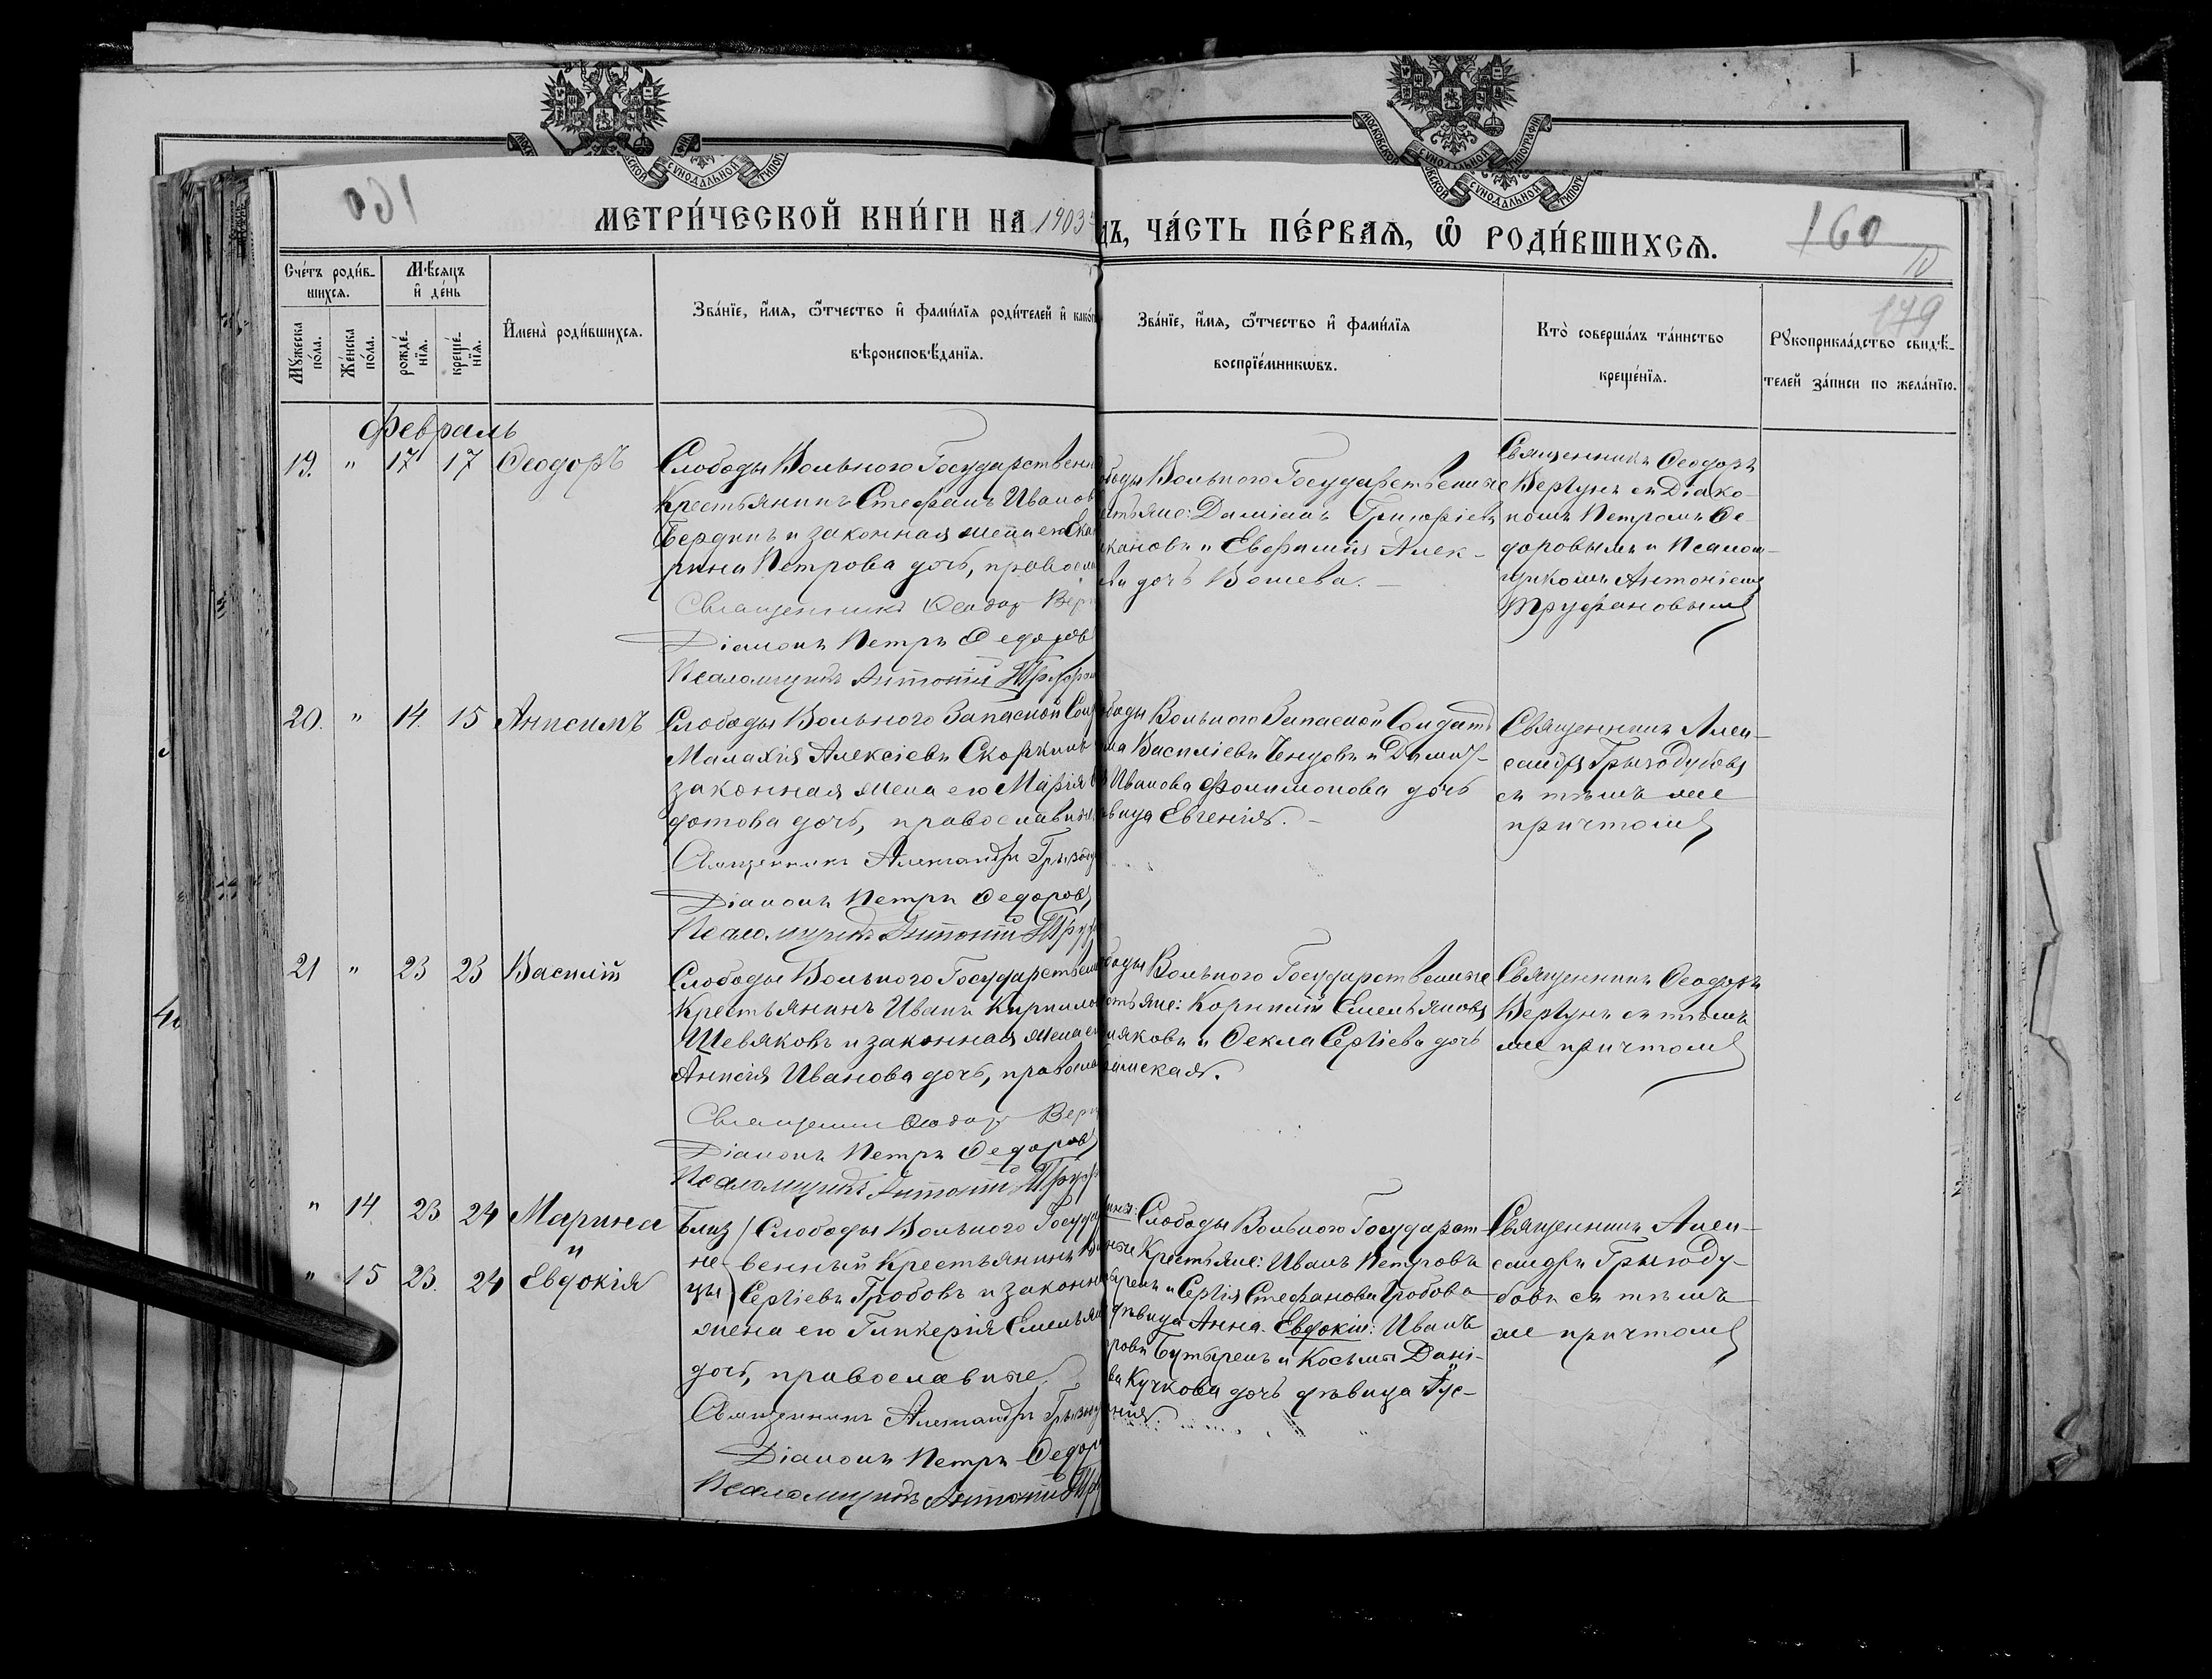 160
МОСКОВСКОЙ СѴНОДАЛЬНОЙ ТИПОГРАФІИ
МЕТРИ́ЧЕСКОЙ КНИ́ГИ НА 1903
ДЪ, ЧА́СТЬ ПЕ́РВАѦ, Ѿ РОДИ́ВШИХСѦ.
160
179
Сче́тъ роди́в-
шихсѧ.
Мꙋжеска по́ла.
Же́нска по́ла.
Мѣ́сѧцъ
и҆ де́нь
рожде́-
нїѧ.
креще́-
нїѧ.
И҆мена̀ роди́вшихсѧ.
Зва́нїе, и҆́мѧ, ѻ҆́тчество и҆ фами́лїѧ роди́телей и҆ како́
вѣроисповѣ́данїѧ.
Зва́нїе, и҆́мѧ, ѻ҆́тчество и҆ фами́лїѧ
воспрїе́мникѡвъ.
Кто̀ соверша́лъ та́инство
креще́нїѧ.
Рꙋкоприкла́дство свидѣ́-
телей за́писи по жела́нїю.
Февраль
19. " 17 17 Ѳеодоръ
Слободы Вольного Государственн
Крестьянинъ Стефанъ Иванов
и законная жена его Ека
рина Петрова дочь, правосла
Священникъ Ѳеодор Верг
Діаконъ Петръ Ѳедоровъ
Псаломщикъ Антоній Труфан
боды Вольного Государственные
стьяне: Даміанъ Григоріев
кановъ и Евфимія Алек-
ва дочь Вошева.
Священникъ Ѳеодоръ
Вергунъ съ Діако-
номъ Петромъ Ѳе-
доровымъ и Псалом-
щикомъ Антоніемъ
Труфановымъ
20. " 14. 15 Анисимъ
Слободы Вольного Запасной Солд
Малахія Алексіевъ Скоркинъ
законная жена его Марія
дотова дочь, православны
Священникъ Александръ Грызод
Діаконъ Петръ Ѳедоровъ
Псаломщикъ Антоній Труф
боды Вольного Запасной Солдатъ
ма Василіевъ и
Иванова Филимонова дочь
вица Евгенія.
Священникъ Алек-
сандръ Грызодубовъ
съ тѣмъ же
причтомъ
21 " 23 23 Василій
Слободы Вольного Государствен
Крестьянинъ Иванъ Кирилло
Шевяковъ и законная жена е
Анисія Иванова дочь, правосла
Священник Ѳеодор Верг
Діаконъ Петръ Ѳедоровъ
Псаломщикъ Антоній Труф
боды Вольного Государственные
стьяне: Корнилій Емельяновъ
ляковъ и Ѳекла Сергіева дочь
Священникъ Ѳеодоръ
Вергунъ съ тѣмъ
же причтомъ
" 14. 23 24 Марина
"
" 15 23. 24 Евдокія
Близ
не
цы
Слободы Вольного Госуда
венный Крестьянинъ
Сергіевъ Гробовъ и законн
жена его Гликерія Емельян
дочь, православные.
Священникъ Александръ Грызод
Діаконъ Петръ Ѳедор
Псаломщикъ Антоній Тру
ины: Слободы Вольного Государст-
нные Крестьяне: Иванъ Петровъ
ыревъ и Сергія Стефанова Гробова
дѣвица Анна. Евдокіи: Иванъ
ровъ Бутыревъ и Косьмы Дані-
ва Кучкова дочь дѣвица
нія.
Священникъ Алек-
сандръ Грызоду-
бовъ съ тѣмъ
же причтомъ